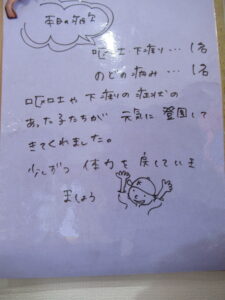 本日の病欠
嘔吐 下痢…1名
のどの痛み…1名
嘔吐や下痢の症状の
あった子たちが 元気に 登園して
きてくれました。
少しずつ 体力を 戻していき
ましょう